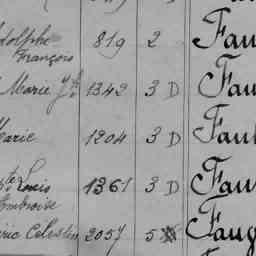 Adolphe 819 2 Fau
François
Marie 1342 3 D Fau
Marie 1204 3 D Fau
Louis 1361 3 D Fau
Ambroise
Célestin 2057 5 Faug